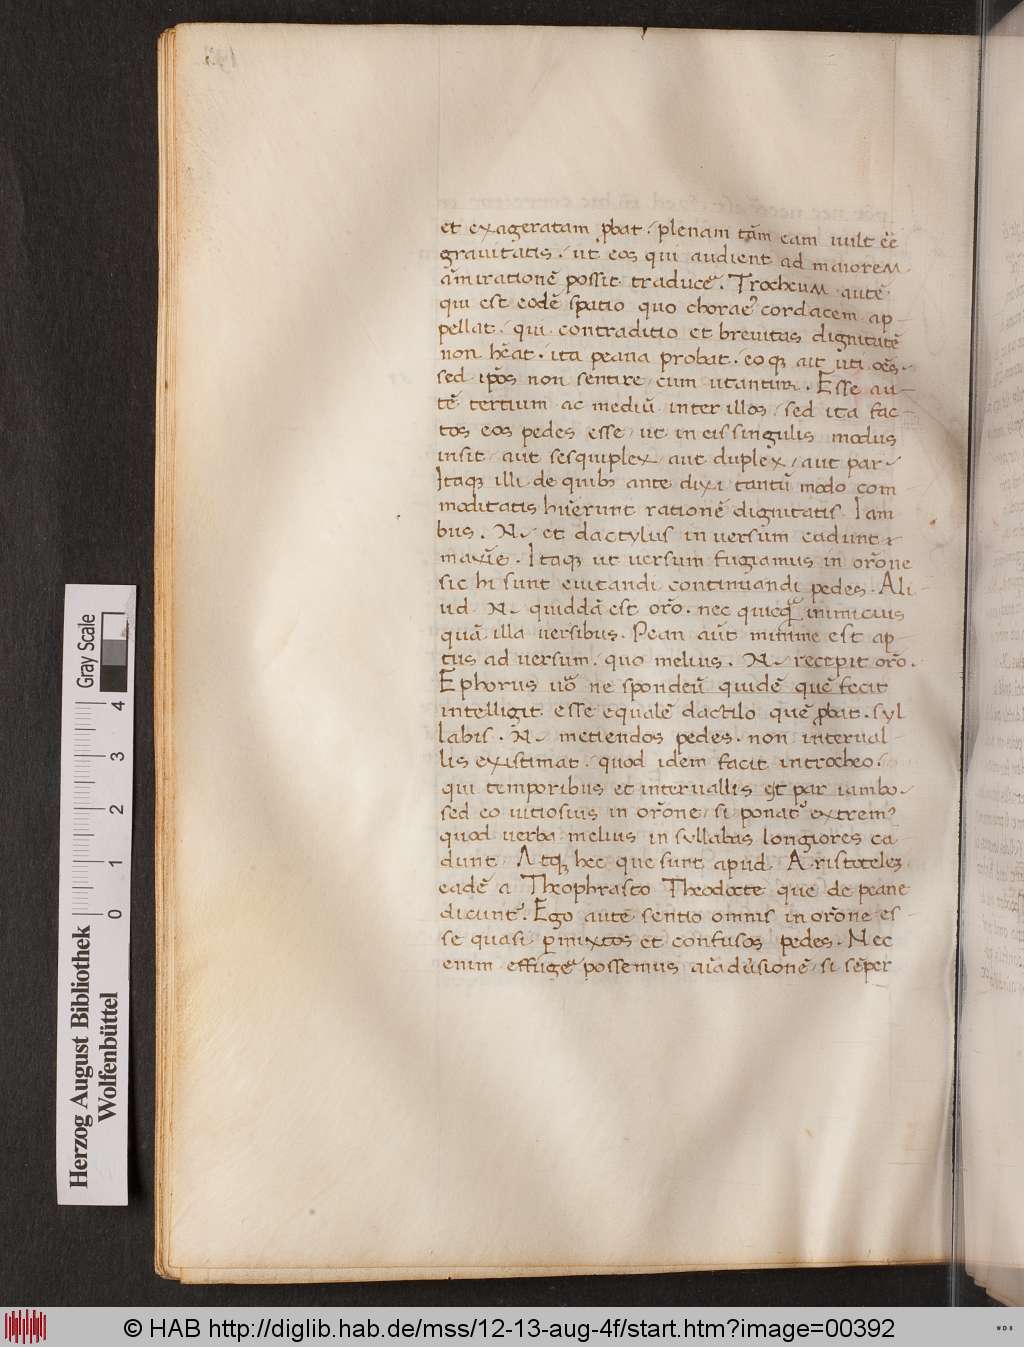 et exageratam ꝓbat / plenam tām eam uult eē
grauitatis / ut eos qui audient ad maiorem
am̄irationē possit traducē. Trocheum autē
qui est eodē spatio quo choraeꝰ cordacem ap-
pellat / qui contraditio et breuitas dignitatē
non hēat. ita peana probat. eoqꝫ ait uti oēs.
sed ipōs non sentire / cum utantur. Esse au-
tē tertium ac mediū inter illos / sed ita fac-
tos eos pedes esse / ut in eis singulis modus
insit / aut sesquiplex / aut duplex / aut par /
Itaqꝫ illi de quibꝫ ante dixi tantū modo com
moditatis hūerunt rationē dignitatis. Iam
bus. N. et dactylus in uersum cadunt
maxīe. Itaqꝫ ut uersum fugiamus in orōne
sic hi sunt euitandi continuandi pedes. Ali-
ud .N. quiddā est orō. nec quicqꝫ inimicius
quā illa uersibus. Pean aūt minime est ap-
tus ad uersum / quo melius .N. recepit orō.
Ephorus uō ne spondeū quidē quē fecit
intelligit esse equalē dactilo quē ꝓbat. syl
labis .N. metiendos pedes. non interual-
lis existimat / quod idem facit in trocheo /
qui temporibus et interuallis est par iambo /
sed eo uitiosius in orōne / si ponatᷣ extremꝰ
quod uerba melius in syllabas longiores ca-
dunt. Atqꝫ hec que sunt apud Aristotelez
eadē a Theophrasto Theodocte que de peane
dicuntᷣ. Ego autē sentio omnis in orōne es-
se quasi ꝑmixtos et confusos pedes. Nec
enim effugē possemus aīaduersionē / si sēper
Herzog August Bibliothek
Wolfenbüttel
Gray Scale
0 1 2 3 4
© HAB http://diglib.hab.de/mss/12-13-aug-4f/start.htm?image=00392